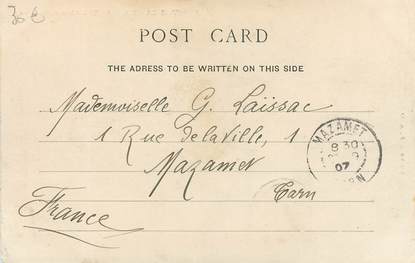 30 €
POST CARD
THE ADRESS TO BE WRITTEN ON THIS SIDE
Mademoiselle G. Laïssac
1 Rue de la Ville, 1
Mazamet
Tarn
France
MAZAMET
8 30
07